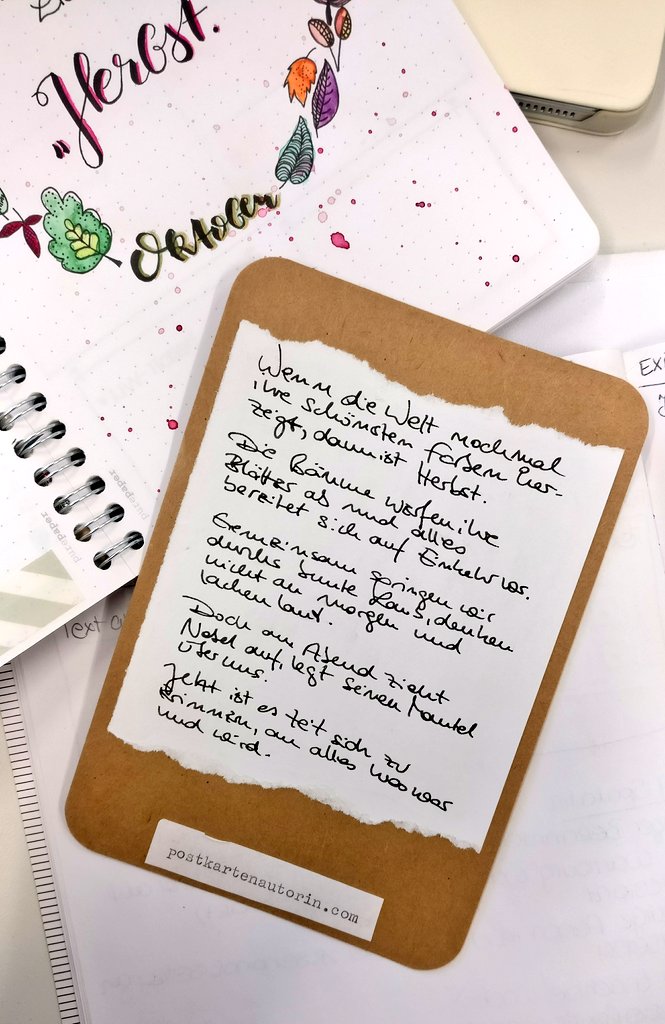 „Herbst.
Oktober
Wenn die Welt nochmal
ihre schönsten Farben her-
zeigt, dann ist Herbst.
Die Bäume werfen ihre
Blätter ab und alles
bereitet sich auf Einkehr vor.
Gemeinsam springen wir
durchs bunte Laub, denken
nicht an morgen und
lachen laut.
Doch am Abend zieht
Nebel auf, legt seinen Mantel
über uns.
Jetzt ist es Zeit sich zu
erinnern, an alles was war
und wird.
postkartenautorin.com
purepaper
purepaper
Text